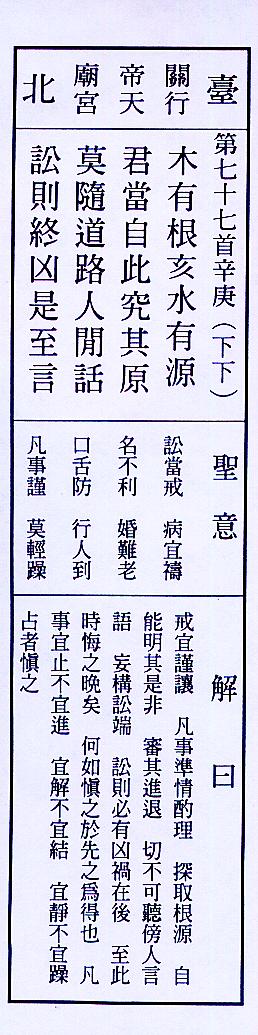 臺
關帝廟
行天宮
北
第七十七首辛庚（下下）
木有根亥水有源
君當自此究其原
莫隨道路人閒話
訟則終凶是至言
聖意
訟當戒 病宜禱
名不利 婚難老
口舌防 行人到
凡事謹 莫輕躁
解曰
戒宜謹讓 凡事準情酌理 探取根源 自
能明其是非 審其進退 切不可聽傍人言
語 妄構訟端 訟則必有凶禍在後 至此
時悔之晚矣 何如慎之於先之為得也 凡
事宜止不宜進 宜解不宜結 宜靜不宜躁
占者慎之